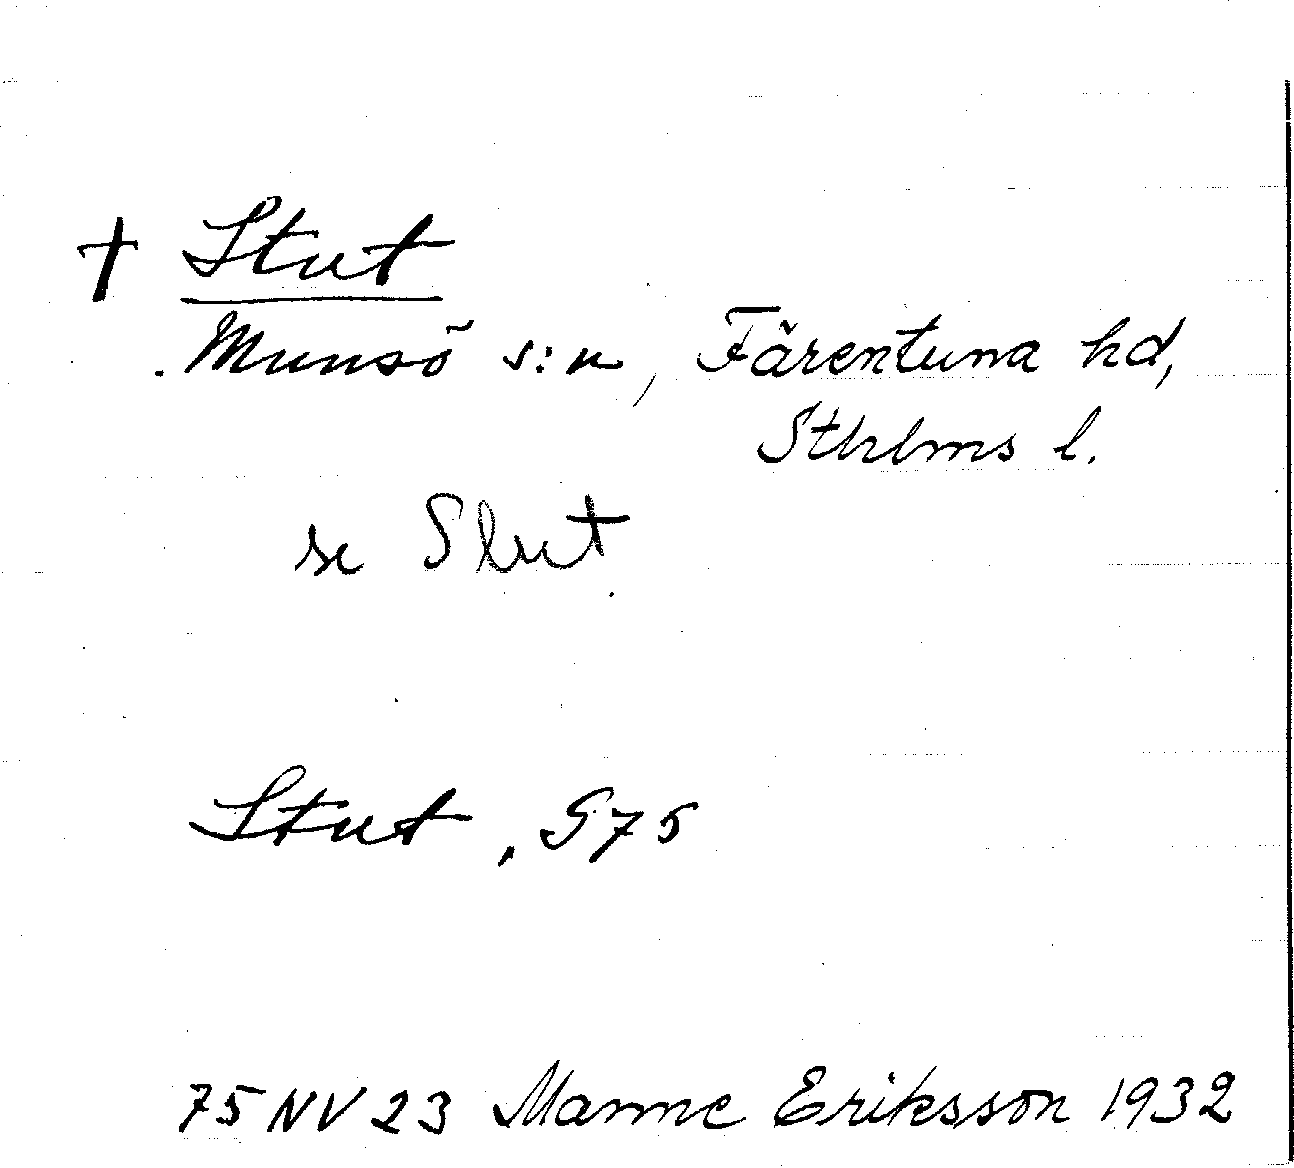 † Stut
Munsö s:n, Färentuna hd,
Sthlms l.
se Slut
Stut, S75
75 NV 23 Manne Eriksson 1932